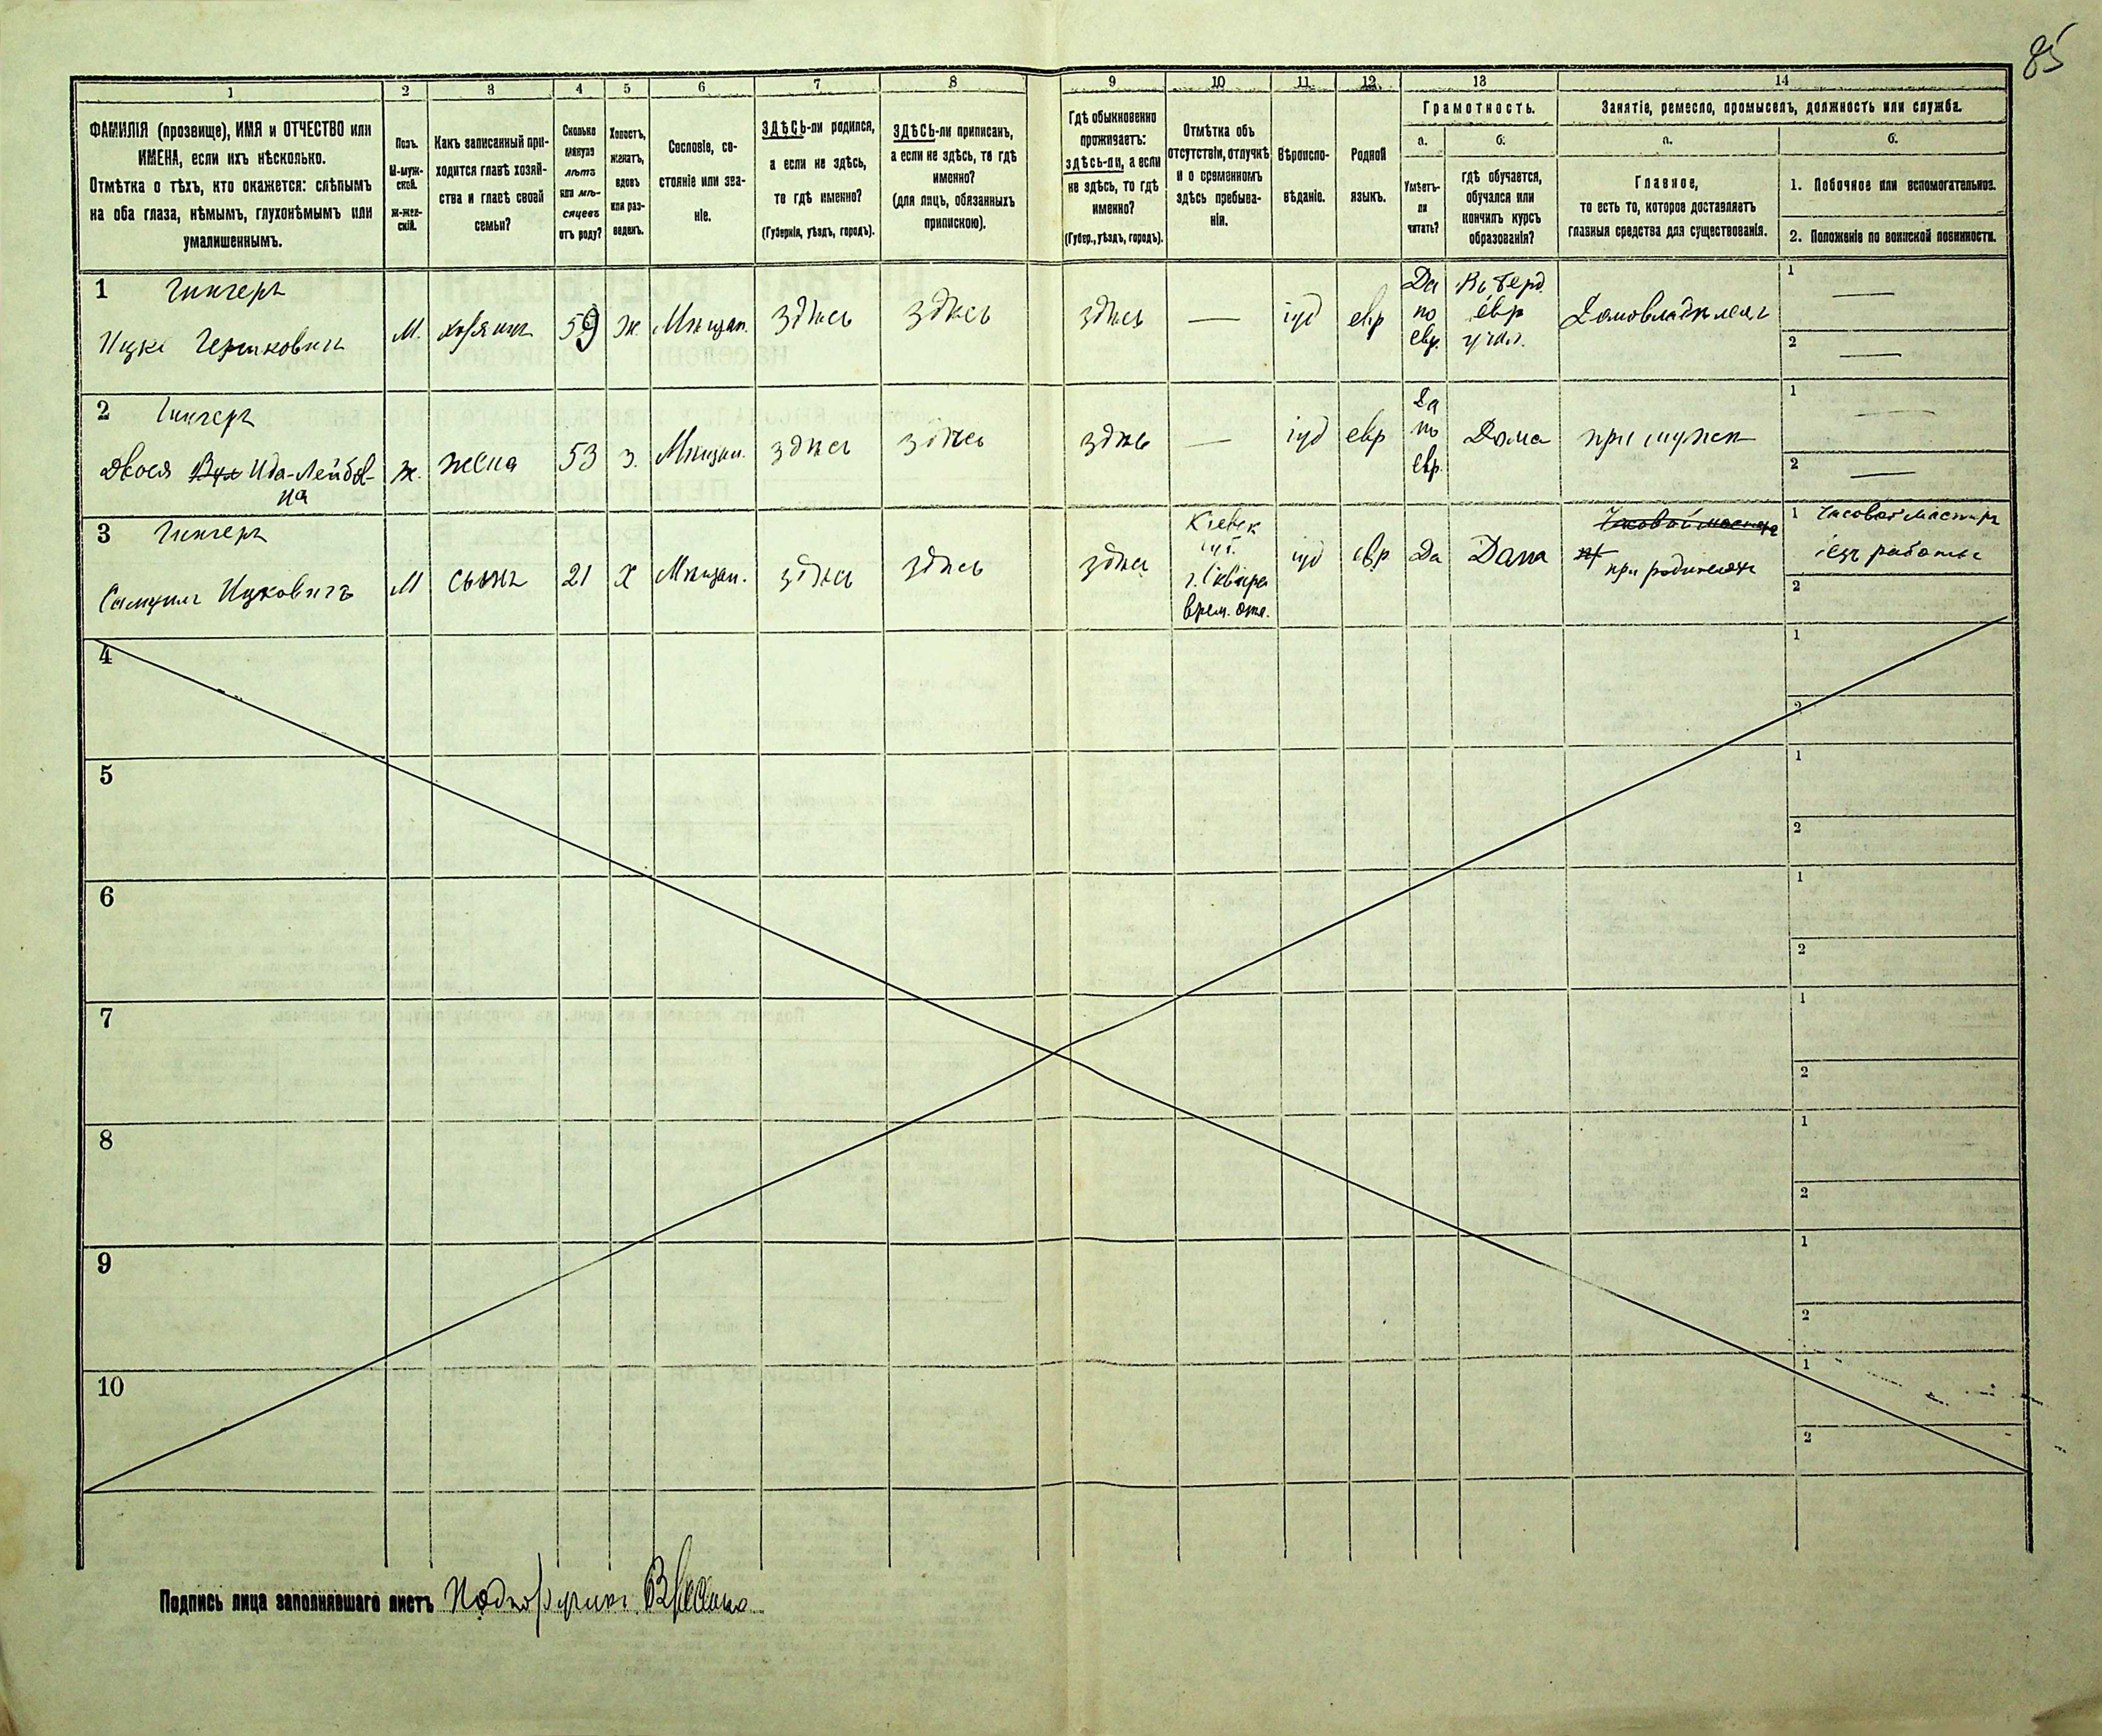 85
1
2
3
4
5
6
7
8
9
10
11
12
13
14
ФАМИЛІЯ (прозвище), ИМЯ и ОТЧЕСТВО или
ИМЕНА, если ихъ нѣсколько.
Отмѣтка о тѣхъ, кто окажется: слѣпымъ
на оба глаза, нѣмымъ, глухонѣмымъ или
умалишеннымъ.
Полъ.
М-муж-
ской.
Ж-жен-
скій.
Какъ записанный при-
ходится главѣ хозяй-
ства и главѣ своей
семьи?
Сколько
минуло
лѣтъ
или мѣ-
сяцевъ
отъ роду?
Холостъ,
женатъ,
вдовъ
или раз-
веденъ.
Сословіе, со-
стояніе или зва-
ніе.
ЗДѢСЬ-ли родился,
а если не здѣсь,
то гдѣ именно?
(Губернія, уѣздъ, городъ).
ЗДѢСЬ-ли приписанъ,
а если не здѣсь, то гдѣ
именно?
(для лицъ, обязанныхъ
припискою).
Гдѣ обыкновенно
проживаетъ:
здѣсь-ли, а если
не здѣсь, то гдѣ
именно?
(Губер., уѣздъ, городъ).
Отмѣтка объ
отсутствіи, отлучкѣ
и о временномъ
здѣсь пребыва-
ніи.
Вѣроиспо-
вѣданіе.
Родной
языкъ.
Грамотность.
а.
Умѣетъ-
ли
читать?
б.
гдѣ обучается,
обучался или
кончилъ курсъ
образованія?
Занятіе, ремесло, промыселъ, должность или служба.
а.
Главное,
то есть то, которое доставляетъ
главныя средства для существованія.
б.
1. Побочное или вспомогательное.
2. Положеніе по воинской повинности.
1 Гингеръ
Ицко Гершковичъ
М.
хозяинъ
59
ж.
Мѣщан.
здѣсь
здѣсь
здѣсь
—
іуд
евр
Да
по
евр.
Въ Берд.
евр
учил.
Домовладѣлецъ
1 —
2 —
2 Гингеръ
Двося Ида-Лейбов-
на
ж.
жена
53
з.
Мѣщан.
здѣсь
здѣсь
здѣсь
—
іуд
евр
Да
по
евр.
Дома
при мужѣ
1 —
2 —
3 Гингеръ
Самуилъ Ицковичъ
М
сынъ
21
Х
Мѣщан.
здѣсь
здѣсь
здѣсь
Кіевск
губ.
г. Сквира
врем. отл.
іуд
евр
Да
Дома
Часовой мастеръ
при родителяхъ
1 Часовой мастеръ
безъ работы
2
4
1
2
5
1
2
6
1
2
7
1
2
8
1
2
9
1
2
10
1
2
Подпись лица заполнявшаго листъ Подпоручикъ